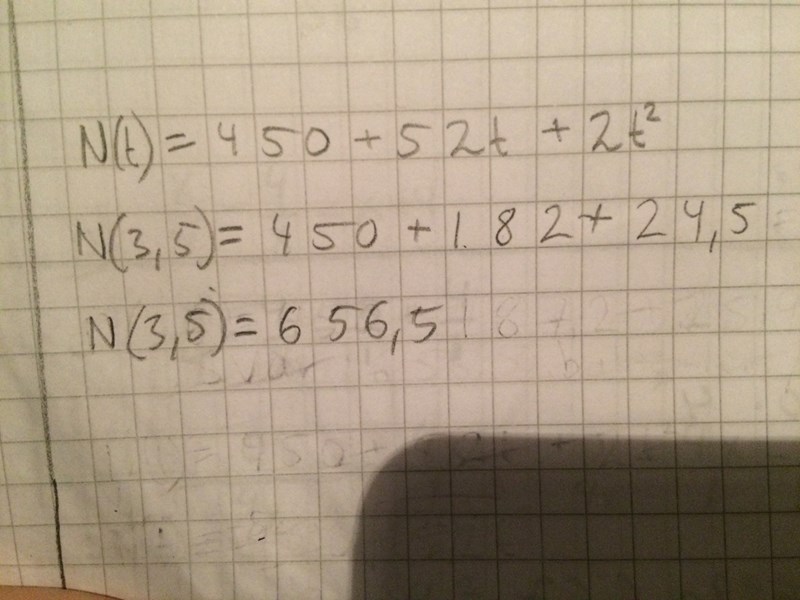 N(t) = 450 + 52t + 2t²
N(3,5) = 450 + 182 + 24,5
N(3,5) = 656,5